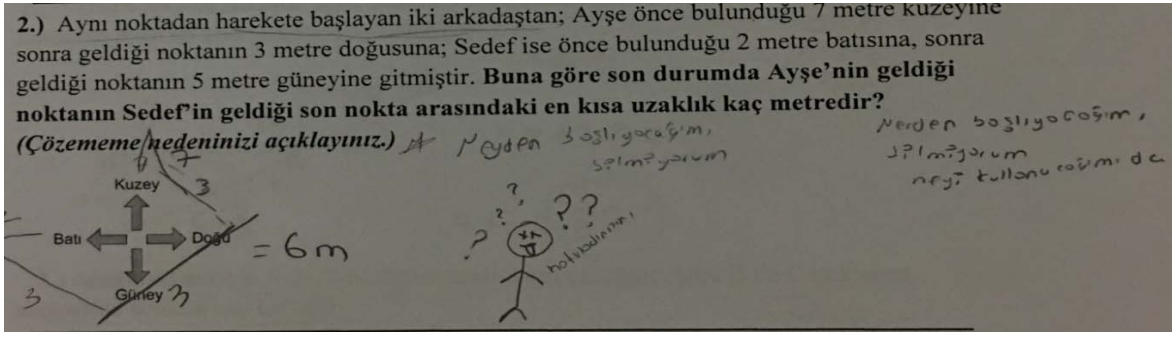 2.) Aynı noktadan harekete başlayan iki arkadaştan; Ayşe önce bulunduğu 7 metre kuzeyine
sonra geldiği noktanın 3 metre doğusuna; Sedef ise önce bulunduğu 2 metre batısına, sonra
geldiği noktanın 5 metre güneyine gitmiştir. Buna göre son durumda Ayşe'nin geldiği
noktanın Sedef'in geldiği son nokta arasındaki en kısa uzaklık kaç metredir?
(Çözememe nedeninizi açıklayınız.)
Neyden başlıyacağım,
bilmiyorum
Nerden başlıyacağım,
bilmiyorum
neyi kullanacağımı da
7
Kuzey 3
Batı Doğu = 6m
3 Güney 3
? ? ? ? ?